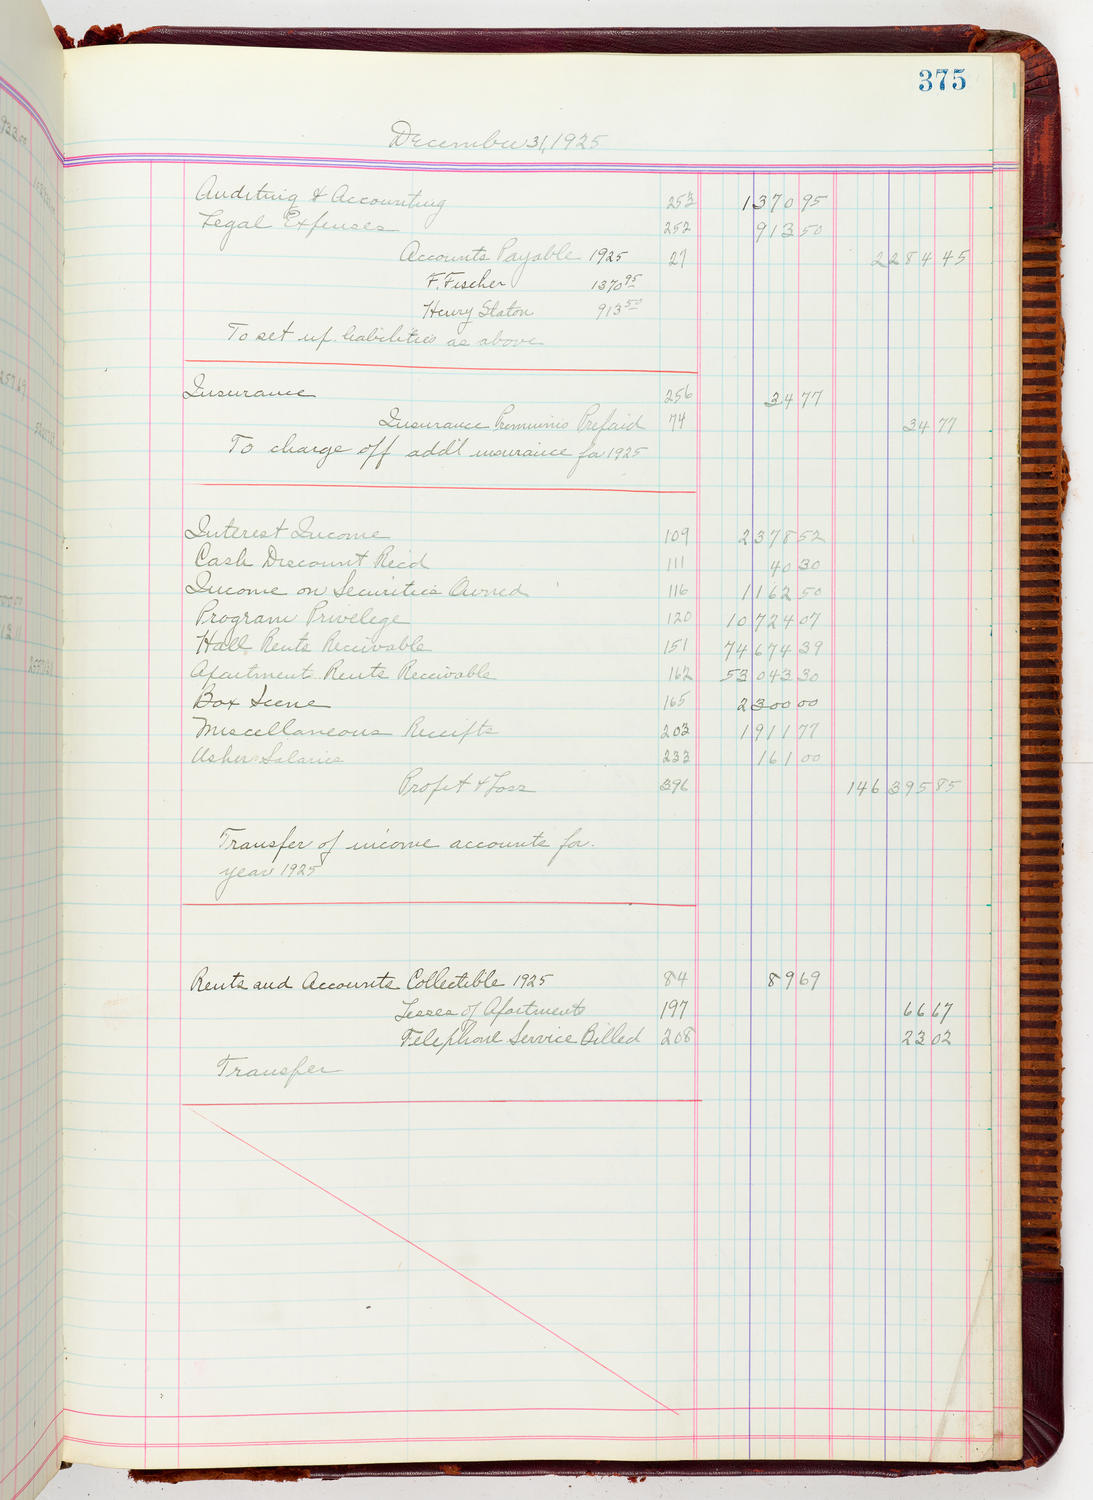 375
December 31, 1925
Auditing & Accounting 253 1370 95
Legal Expenses 252 913 50
Accounts Payable 1925 27 2284 45
F. Fischer 1370 95
Henry Staton 913 50
To set up liabilities as above
Insurance 256 34 77
Insurance Premiums Prepaid 74 34 77
To charge off add'l insurance for 1925
Interest Income 109 2378 52
Cash Discount Rec'd 111 40 30
Income on Securities Owned 116 1162 50
Program Privilege 120 10724 07
Hall Rents Receivable 151 74674 39
Apartment Rents Receivable 162 53043 30
Box Scene 165 2300 00
Miscellaneous Receipts 203 1911 77
Usher Salaries 233 161 00
Profit & Loss 396 146395 85
Transfer of income accounts for
year 1925
Rents and Accounts Collectible 1925 84 89 69
Lesses of Apartments 197 66 67
Telephone Service Billed 208 23 02
Transfer